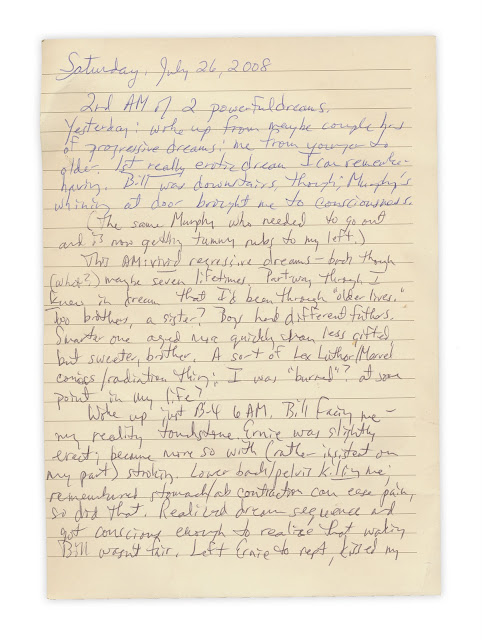 Saturday, July 26, 2008
2nd AM of 2 powerful dreams.
Yesterday: woke up from maybe couple hrs
of progressive dreams; me from younger to
older. 1st really erotic dream I can remember
having. Bill was downstairs, though; Murphy's
whining at door brought me to consciousness.
(The same Murphy who needed to go out
and is now getting tummy rubs to my left.)
This AM: vivid regressive dreams – back though
(what?) maybe seven lifetimes. Part way through I
knew in dream that I'd been through "older lives."
Two brothers, a sister? Boys had different fathers.
Smarter one aged more quickly than less gifted,
but sweeter, brother. A sort of Lex Luthor/Marvel
comics/radiation thing; I was "burned"? at some
point in my life?
Woke up just B-4 6 AM. Bill facing me –
my reality touchstone. Ernie was slightly
erect; became more so with (rather insistent on
my part) stroking. Lower back/pelvis killing me;
remembered stomach/ab contraction can ease pain,
so did that. Realized dream sequence and
got conscious enough to realize that waking
Bill wasn't fair. Left Ernie to rest, kissed my